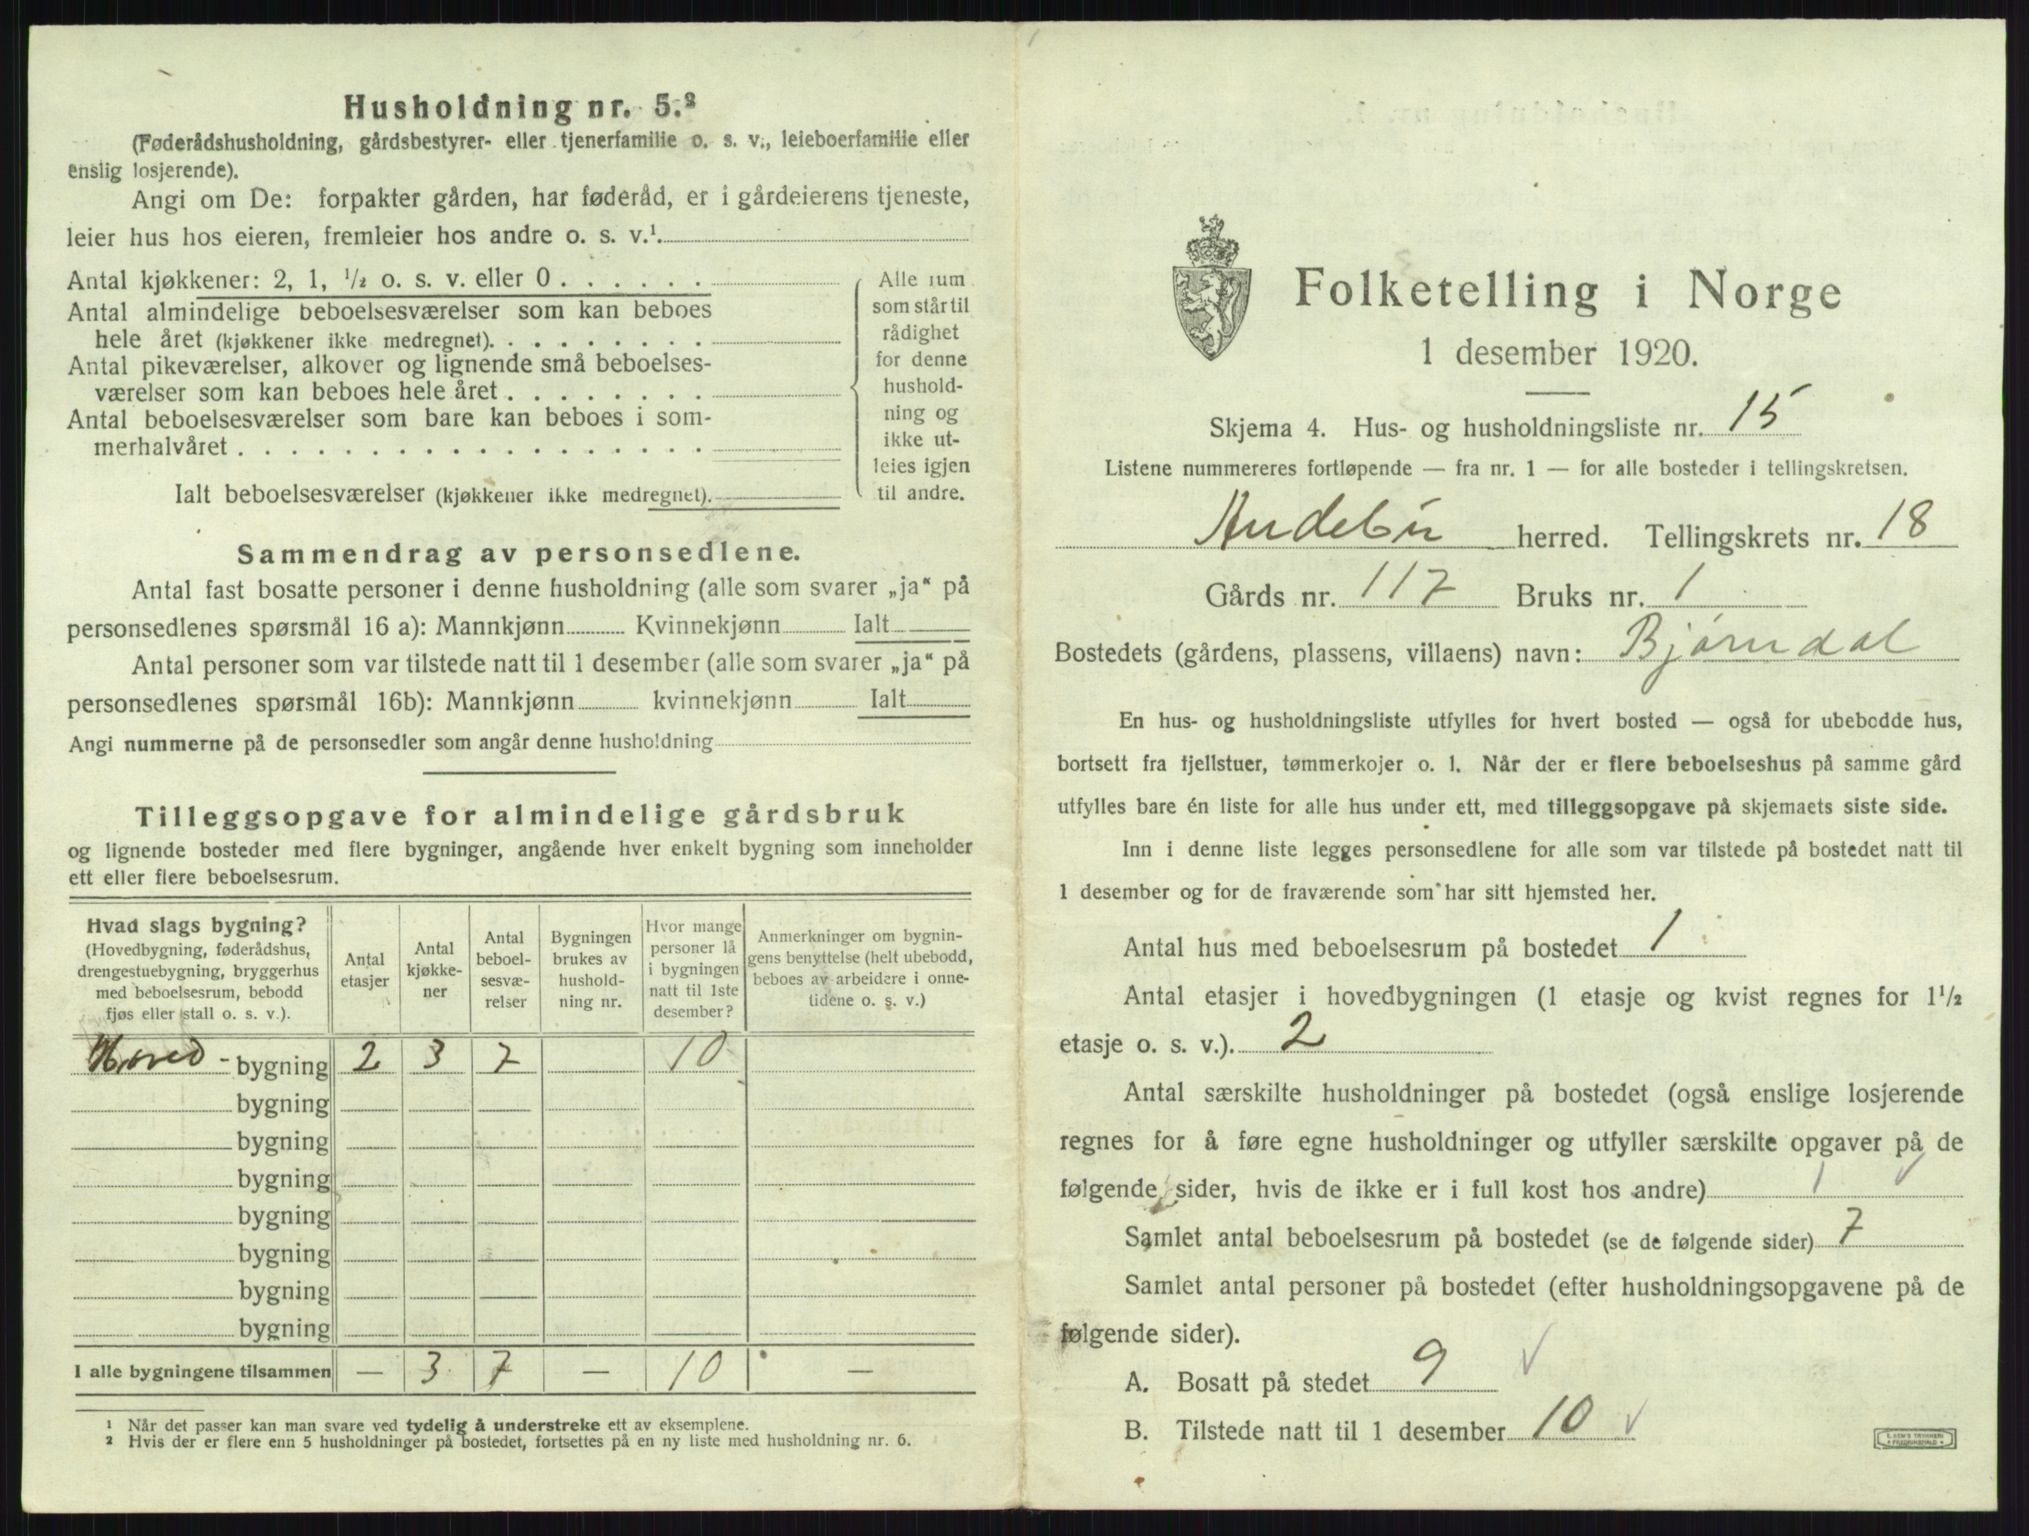 Husholdning nr. 5.²
(Føderådshusholdning, gårdsbestyrer- eller tjenerfamilie o. s. v., leieboerfamilie eller
enslig losjerende).
Angi om De: forpakter gården, har føderåd, er i gårdeierens tjeneste,
leier hus hos eieren, fremleier hos andre o. s. v.¹
Antal kjøkkener: 2, 1, ½ o. s. v. eller 0
Antal almindelige beboelsesværelser som kan beboes
hele året (kjøkkener ikke medregnet).
Antal pikeværelser, alkover og lignende små beboelses-
værelser som kan beboes hele året
Antal beboelsesværelser som bare kan beboes i som-
merhalvåret
Ialt beboelsesværelser (kjøkkener ikke medregnet).
Alle rum
som står til
rådighet
for denne
hushold-
ning og
ikke ut-
leies igjen
til andre.
Sammendrag av personsedlene.
Antal fast bosatte personer i denne husholdning (alle som svarer „ja“ på
personsedlenes spørsmål 16 a): Mannkjønn Kvinnekjønn Ialt
Antal personer som var tilstede natt til 1 desember (alle som svarer „ja“ på
personsedlenes spørsmål 16b): Mannkjønn kvinnekjønn Ialt
Angi nummerne på de personsedler som angår denne husholdning
Tilleggsopgave for almindelige gårdsbruk
og lignende bosteder med flere bygninger, angående hver enkelt bygning som inneholder
ett eller flere beboelsesrum.
Hvad slags bygning?
(Hovedbygning, føderådshus,
drengestuebygning, bryggerhus
med beboelsesrum, bebodd
fjøs eller stall o. s. v.).
Antal
etasjer
Antal
kjøkke-
ner
Antal
beboel-
sesvæ-
relser
Bygningen
brukes av
hushold-
ning nr.
Hvor mange
personer lå
i bygningen
natt til 1ste
desember?
Anmerkninger om bygnin-
gens benyttelse (helt ubebodd,
beboes av arbeidere i onne-
tidene o. s. v.)
Hoved- bygning 2 3 7 10
bygning
bygning
bygning
bygning
bygning
bygning
bygning
I alle bygningene tilsammen — 3 7 — 10 —
¹ Når det passer kan man svare ved tydelig å understreke ett av eksemplene.
² Hvis der er flere enn 5 husholdninger på bostedet, fortsettes på en ny liste med husholdning nr. 6.
Folketelling i Norge
1 desember 1920.
Skjema 4. Hus- og husholdningsliste nr. 15
Listene nummereres fortløpende — fra nr. 1 — for alle bosteder i tellingskretsen.
Andebu herred. Tellingskrets nr. 18
Gårds nr. 117 Bruks nr. 1
Bostedets (gårdens, plassens, villaens) navn: Bjørndal
En hus- og husholdningsliste utfylles for hvert bosted — også for ubebodde hus,
bortsett fra fjellstuer, tømmerkojer o. l. Når der er flere beboelseshus på samme gård
utfylles bare én liste for alle hus under ett, med tilleggsopgave på skjemaets siste side.
Inn i denne liste legges personsedlene for alle som var tilstede på bostedet natt til
1 desember og for de fraværende som har sitt hjemsted her.
Antal hus med beboelsesrum på bostedet 1
Antal etasjer i hovedbygningen (1 etasje og kvist regnes for 1½
etasje o. s. v.). 2
Antal særskilte husholdninger på bostedet (også enslige losjerende
regnes for å føre egne husholdninger og utfyller særskilte opgaver på de
følgende sider, hvis de ikke er i full kost hos andre) 1 ✓
Samlet antal beboelsesrum på bostedet (se de følgende sider) 7
Samlet antal personer på bostedet (efter husholdningsopgavene på de
følgende sider).
A. Bosatt på stedet 9 ✓
B. Tilstede natt til 1 desember 10 ✓